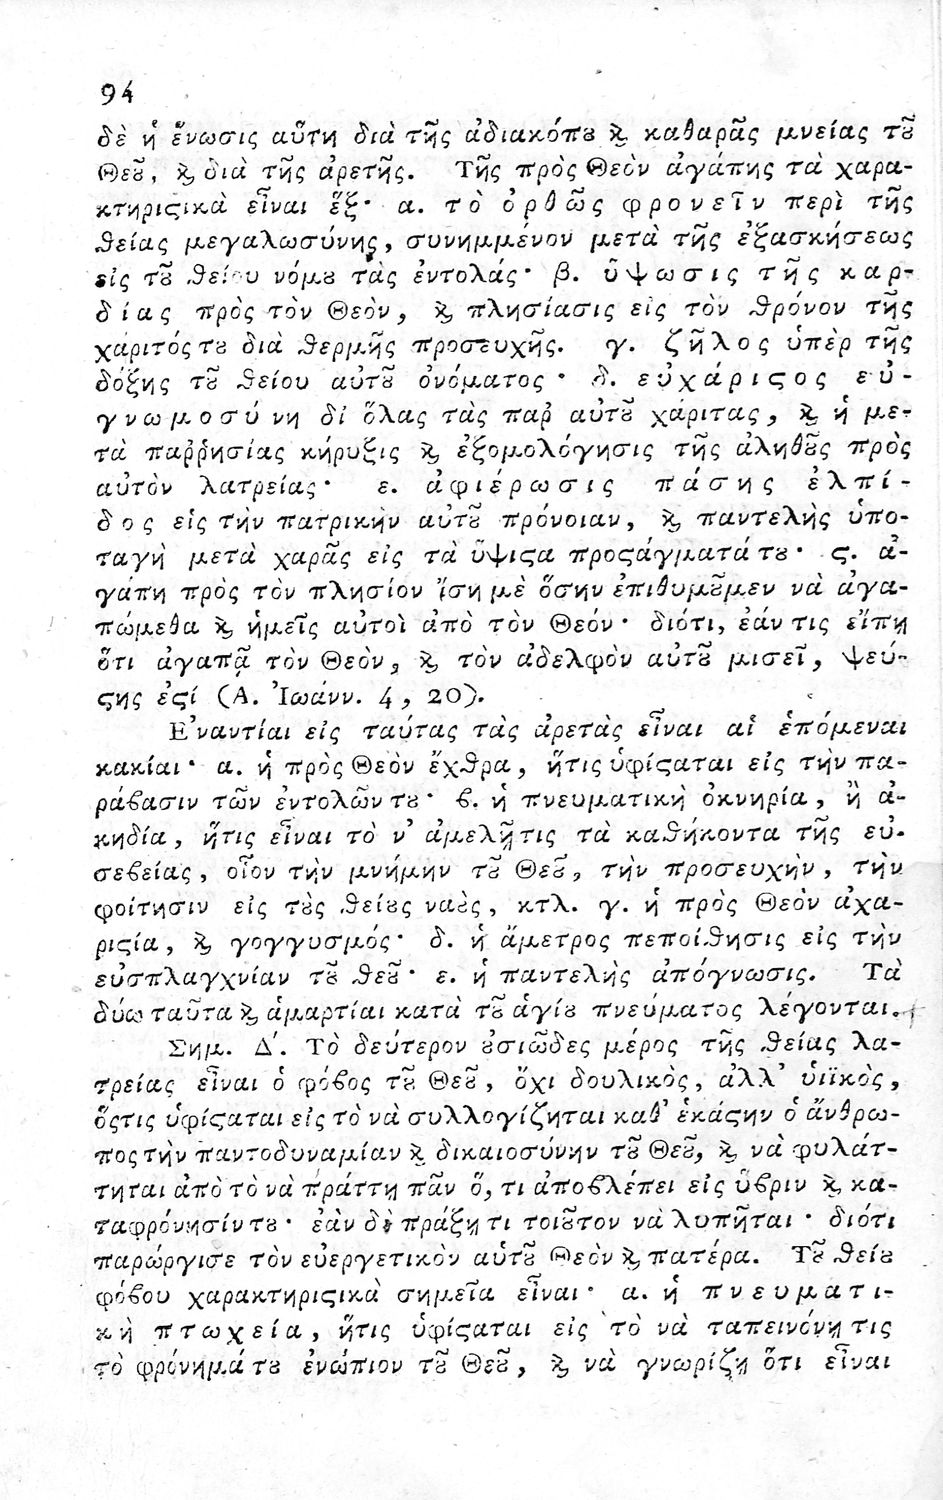 94
δὲ ἡ ἕνωσις αὕτη διὰ τῆς ἀδιακόπȣ ϗ καθαρᾶς μνείας τȣ͂
Θεȣ͂, ϗ διὰ τῆς ἀρετῆς. Τῆς πρὸς Θεὸν ἀγάπης τὰ χαρα-
κτηριϛικὰ εἶναι ἕξ· α. τὸ ὀρθῶς φρονεῖν περὶ τῆς
θείας μεγαλωσύνης, συνημμένον μετὰ τῆς ἐξασκήσεως
εἰς τȣ͂ θείου νόμȣ τὰς ἐντολάς· β. ὕψωσις τῆς καρ-
δίας πρὸς τὸν Θεὸν, ϗ πλησίασις εἰς τὸν θρόνον τῆς
χάριτός τȣ διὰ θερμῆς προσευχῆς. γ. ζῆλος ὑπὲρ τῆς
δόξης τȣ͂ θείου αὐτȣ͂ ὀνόματος· δ. εὐχάριϛος εὐ-
γνωμοσύνη δι' ὅλας τὰς παρ' αὐτȣ͂ χάριτας, ϗ ἡ με-
τὰ παῤῥησίας κήρυξις ϗ ἐξομολόγησις τῆς ἀληθȣ͂ς πρὸς
αὐτὸν λατρείας· ε. ἀφιέρωσις πάσης ἐλπί-
δος εἰς τὴν πατρικὴν αὐτȣ͂ πρόνοιαν, ϗ παντελὴς ὑπο-
ταγὴ μετὰ χαρᾶς εἰς τὰ ὕψιϛα προϛάγματά τȣ· ϛ. ἀ-
γάπη πρὸς τὸν πλησίον ἴση μὲ ὅσην ἐπιθυμȣ͂μεν νὰ ἀγα-
πώμεθα ϗ ἡμεῖς αὐτοὶ ἀπὸ τὸν Θεόν· διότι, ἐάν τις εἴπῃ
ὅτι ἀγαπᾷ τὸν Θεὸν, ϗ τὸν ἀδελφὸν αὐτȣ͂ μισεῖ, ψεύ-
ϛης ἐϛί (Α. Ἰωάνν. 4, 20).
Ἐναντίαι εἰς ταύτας τὰς ἀρετὰς εἶναι αἱ ἑπόμεναι
κακίαι· α. ἡ πρὸς Θεὸν ἔχθρα, ἥτις ὑφίϛαται εἰς τὴν πα-
ράβασιν τῶν ἐντολῶν τȣ· β. ἡ πνευματικὴ ὀκνηρία, ἢ ἀ-
κηδία, ἥτις εἶναι τὸ ν' ἀμελῇ τις τὰ καθήκοντα τῆς εὐ-
σεβείας, οἷον τὴν μνήμην τȣ͂ Θεȣ͂, τὴν προσευχὴν, τὴν
φοίτησιν εἰς τȣ̀ς θείȣς ναȣ̀ς, κτλ. γ. ἡ πρὸς Θεὸν ἀχα-
ριϛία, ϗ γογγυσμός· δ. ἡ ἄμετρος πεποίθησις εἰς τὴν
εὐσπλαγχνίαν τȣ͂ θεȣ͂· ε. ἡ παντελὴς ἀπόγνωσις. Τὰ
δύω ταῦτα ϗ ἁμαρτίαι κατὰ τȣ͂ ἁγίȣ πνεύματος λέγονται.
Σημ. Δ'. Τὸ δεύτερον ȣ̓σιῶδες μέρος τῆς θείας λα-
τρείας εἶναι ὁ φόβος τȣ͂ Θεȣ͂, ὄχι δουλικὸς, ἀλλ' υἱϊκὸς,
ὅςτις ὑφίϛαται εἰς τὸ νὰ συλλογίζηται καθ' ἑκάϛην ὁ ἄνθρω-
πος τὴν παντοδυναμίαν ϗ δικαιοσύνην τȣ͂ Θεȣ͂, ϗ νὰ φυλάτ-
τηται ἀπὸ τὸ νὰ πράττῃ πᾶν ὅ,τι ἀποβλέπει εἰς ὕβριν ϗ κα-
ταφρόνησίν τȣ· ἐὰν δὲ πράξῃ τι τοιȣ͂τον νὰ λυπῆται· διότι
παρώργισε τὸν εὐεργετικὸν αὑτȣ͂ Θεὸν ϗ πατέρα. Τȣ͂ θείȣ
φόβου χαρακτηριϛικὰ σημεῖα εἶναι· α. ἡ πνευματι-
κὴ πτωχεία, ἥτις ὑφίϛαται εἰς τὸ νὰ ταπεινόνῃ τις
τὸ φρόνημά τȣ ἐνώπιον τȣ͂ Θεȣ͂, ϗ νὰ γνωρίζῃ ὅτι εἶναι